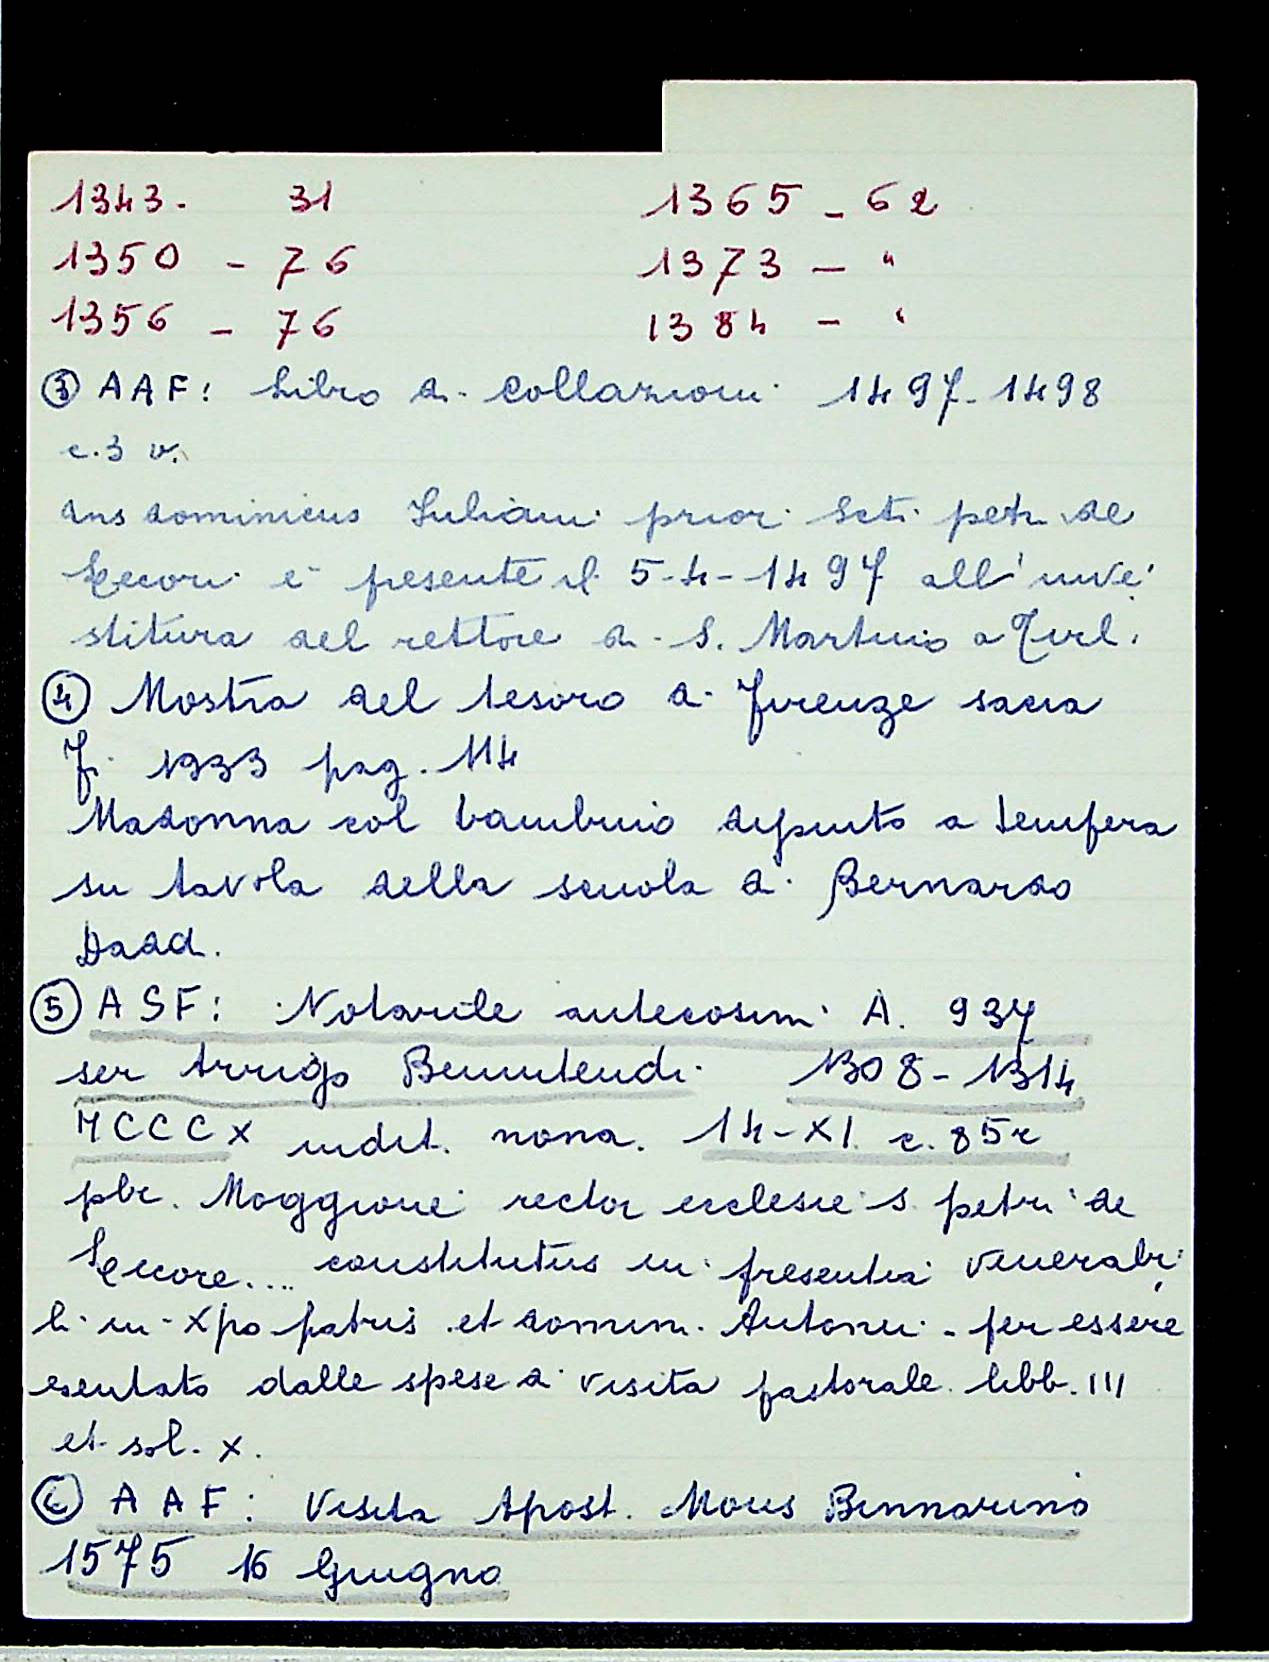 1343. 31 1365 - 62
1350 - 76 1373 - "
1356 - 76 1384 - "
③ AAF: Libro di Collazioni 1497-1498
c. 3 v.
dns dominicus Iuliani prior Scti petri de
Ecori è presente il 5-4-1497 all'inve-
stitura del rettore di S. Martino a
④ Mostra del tesoro di Firenze sacra
F. 1933 pag. 114
Madonna col bambino dipinto a tempera
su tavola della scuola di Bernardo
Dadd.
⑤ ASF: Notarile antecosim. A. 937
ser Arrigo Benintendi 1308-1314
MCCCX indit. nona. 14-XI. c. 85r
pbr. Moggione rector ecclesie s. petri de
Eccore... constitutus in presentia venerabi-
li in xpo patris et domini Antonii - per essere
esentato dalle spese di visita pastorale libb. III
et sol. x.
⑥ AAF: Visita Apost. Mons Binnarino
1575 16 Giugno